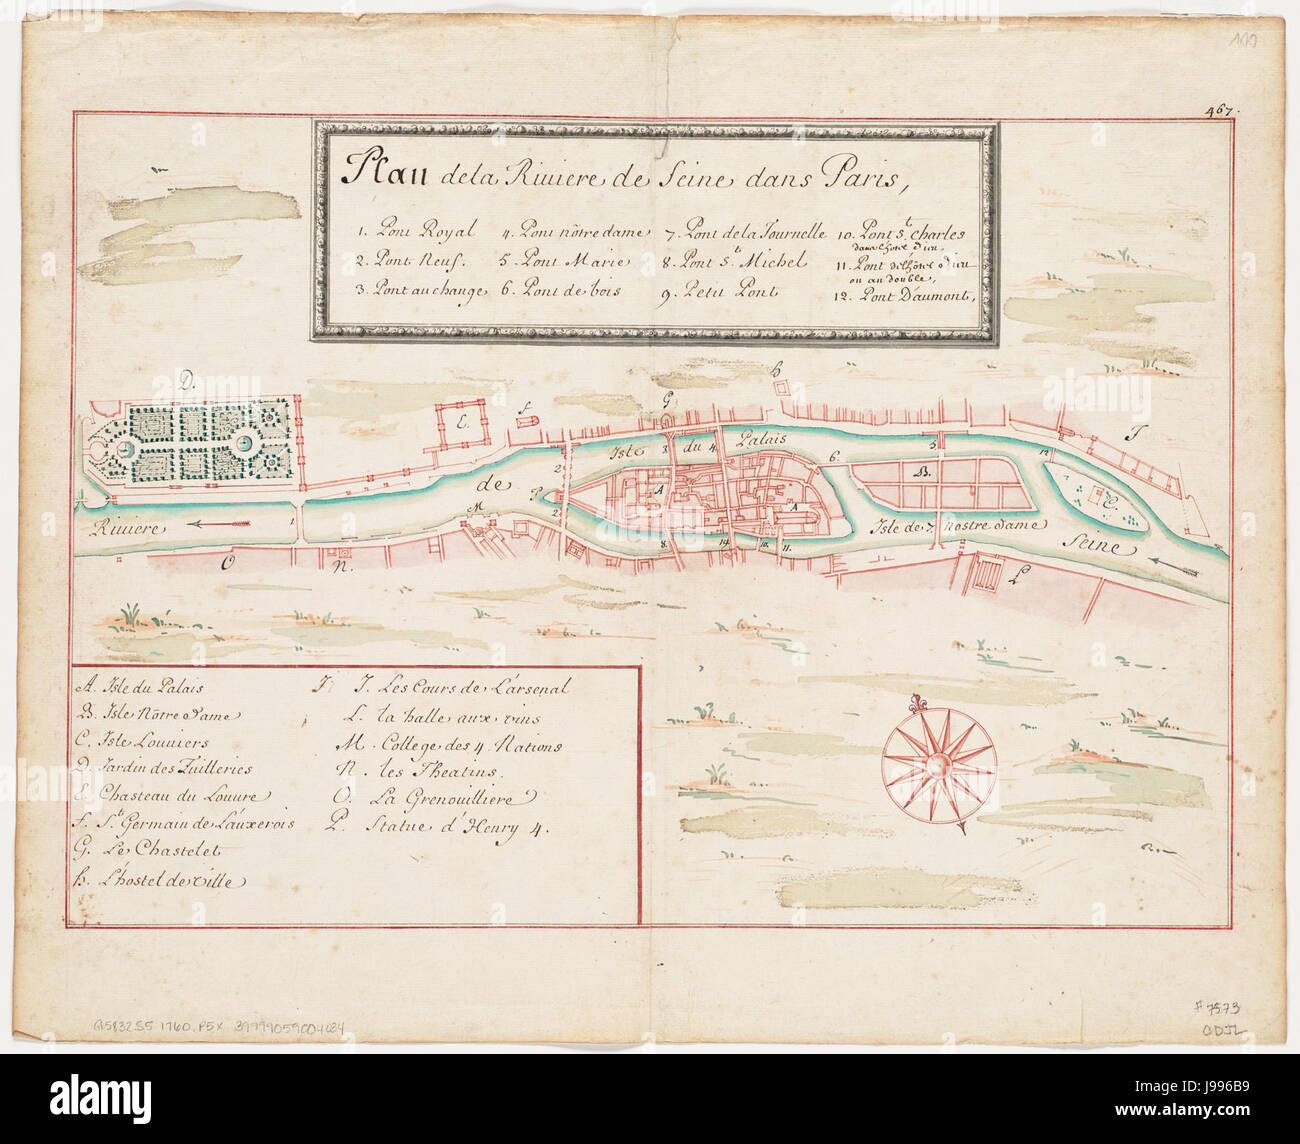 110
467.
Plan dela Riuiere de Seine dans Paris,
1. Pont Royal
2. Pont Neuf.
3. Pont au change
4. Pont nôtre dame
5. Pont Marie
6. Pont de bois
7. Pont dela Tournelle
8. Pont St. Michel
9. Petit Pont
10. Pont St. charles
dans lhôtel d ieu
11. Pont delhôtel d ieu
ou au double,
12. Pont D'aumont,
D.
E.
F
G
h
J
Isle du Palais
3
4
5
12
2
6.
de
A
A
B.
C.
P.
2
M
Riuiere
1
Isle de Nostre Dame
7
Seine
8.
14.
10.
11.
O
N.
L
A. Isle du Palais
B. Isle Nôtre Dame
C. Isle Louuiers
D. Jardin des Tuilleries
E. Chasteau du Louure
F. St. Germain de Láuxerois
G. Le Chastelet
h. L'hostel de ville
J J. Les Cours de L'arsenal
L. la halle aux vins
M. College des 4. Nations
N. les Theatins.
O. La Grenouilliere
P. Statue d'Henry 4.
G5832S5 1760.P5X 39999059004084
# 7573
ODJL
alamy
Image ID: J996B9
www.alamy.com